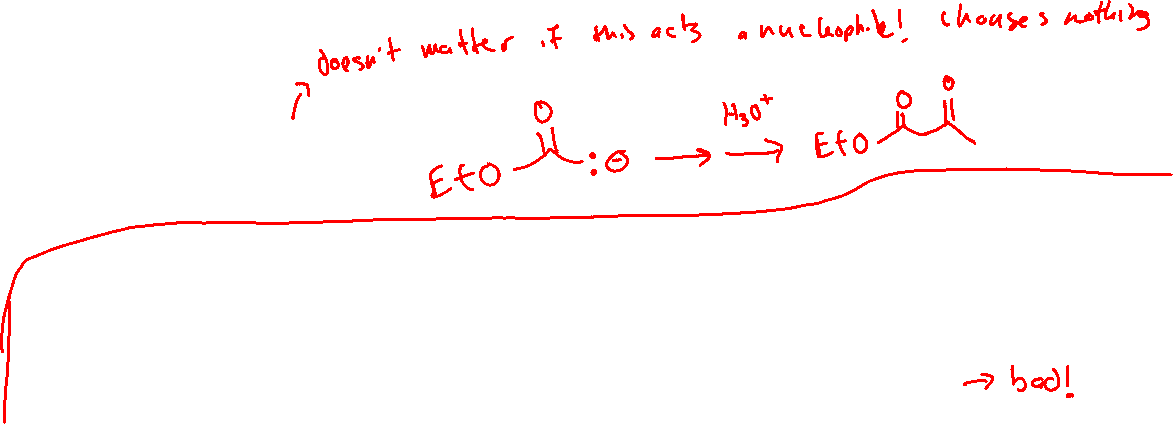 doesn't matter if this acts a nucleophile! changes nothing
O O O
H3O+
EtO :⊖ EtO
→ bad!